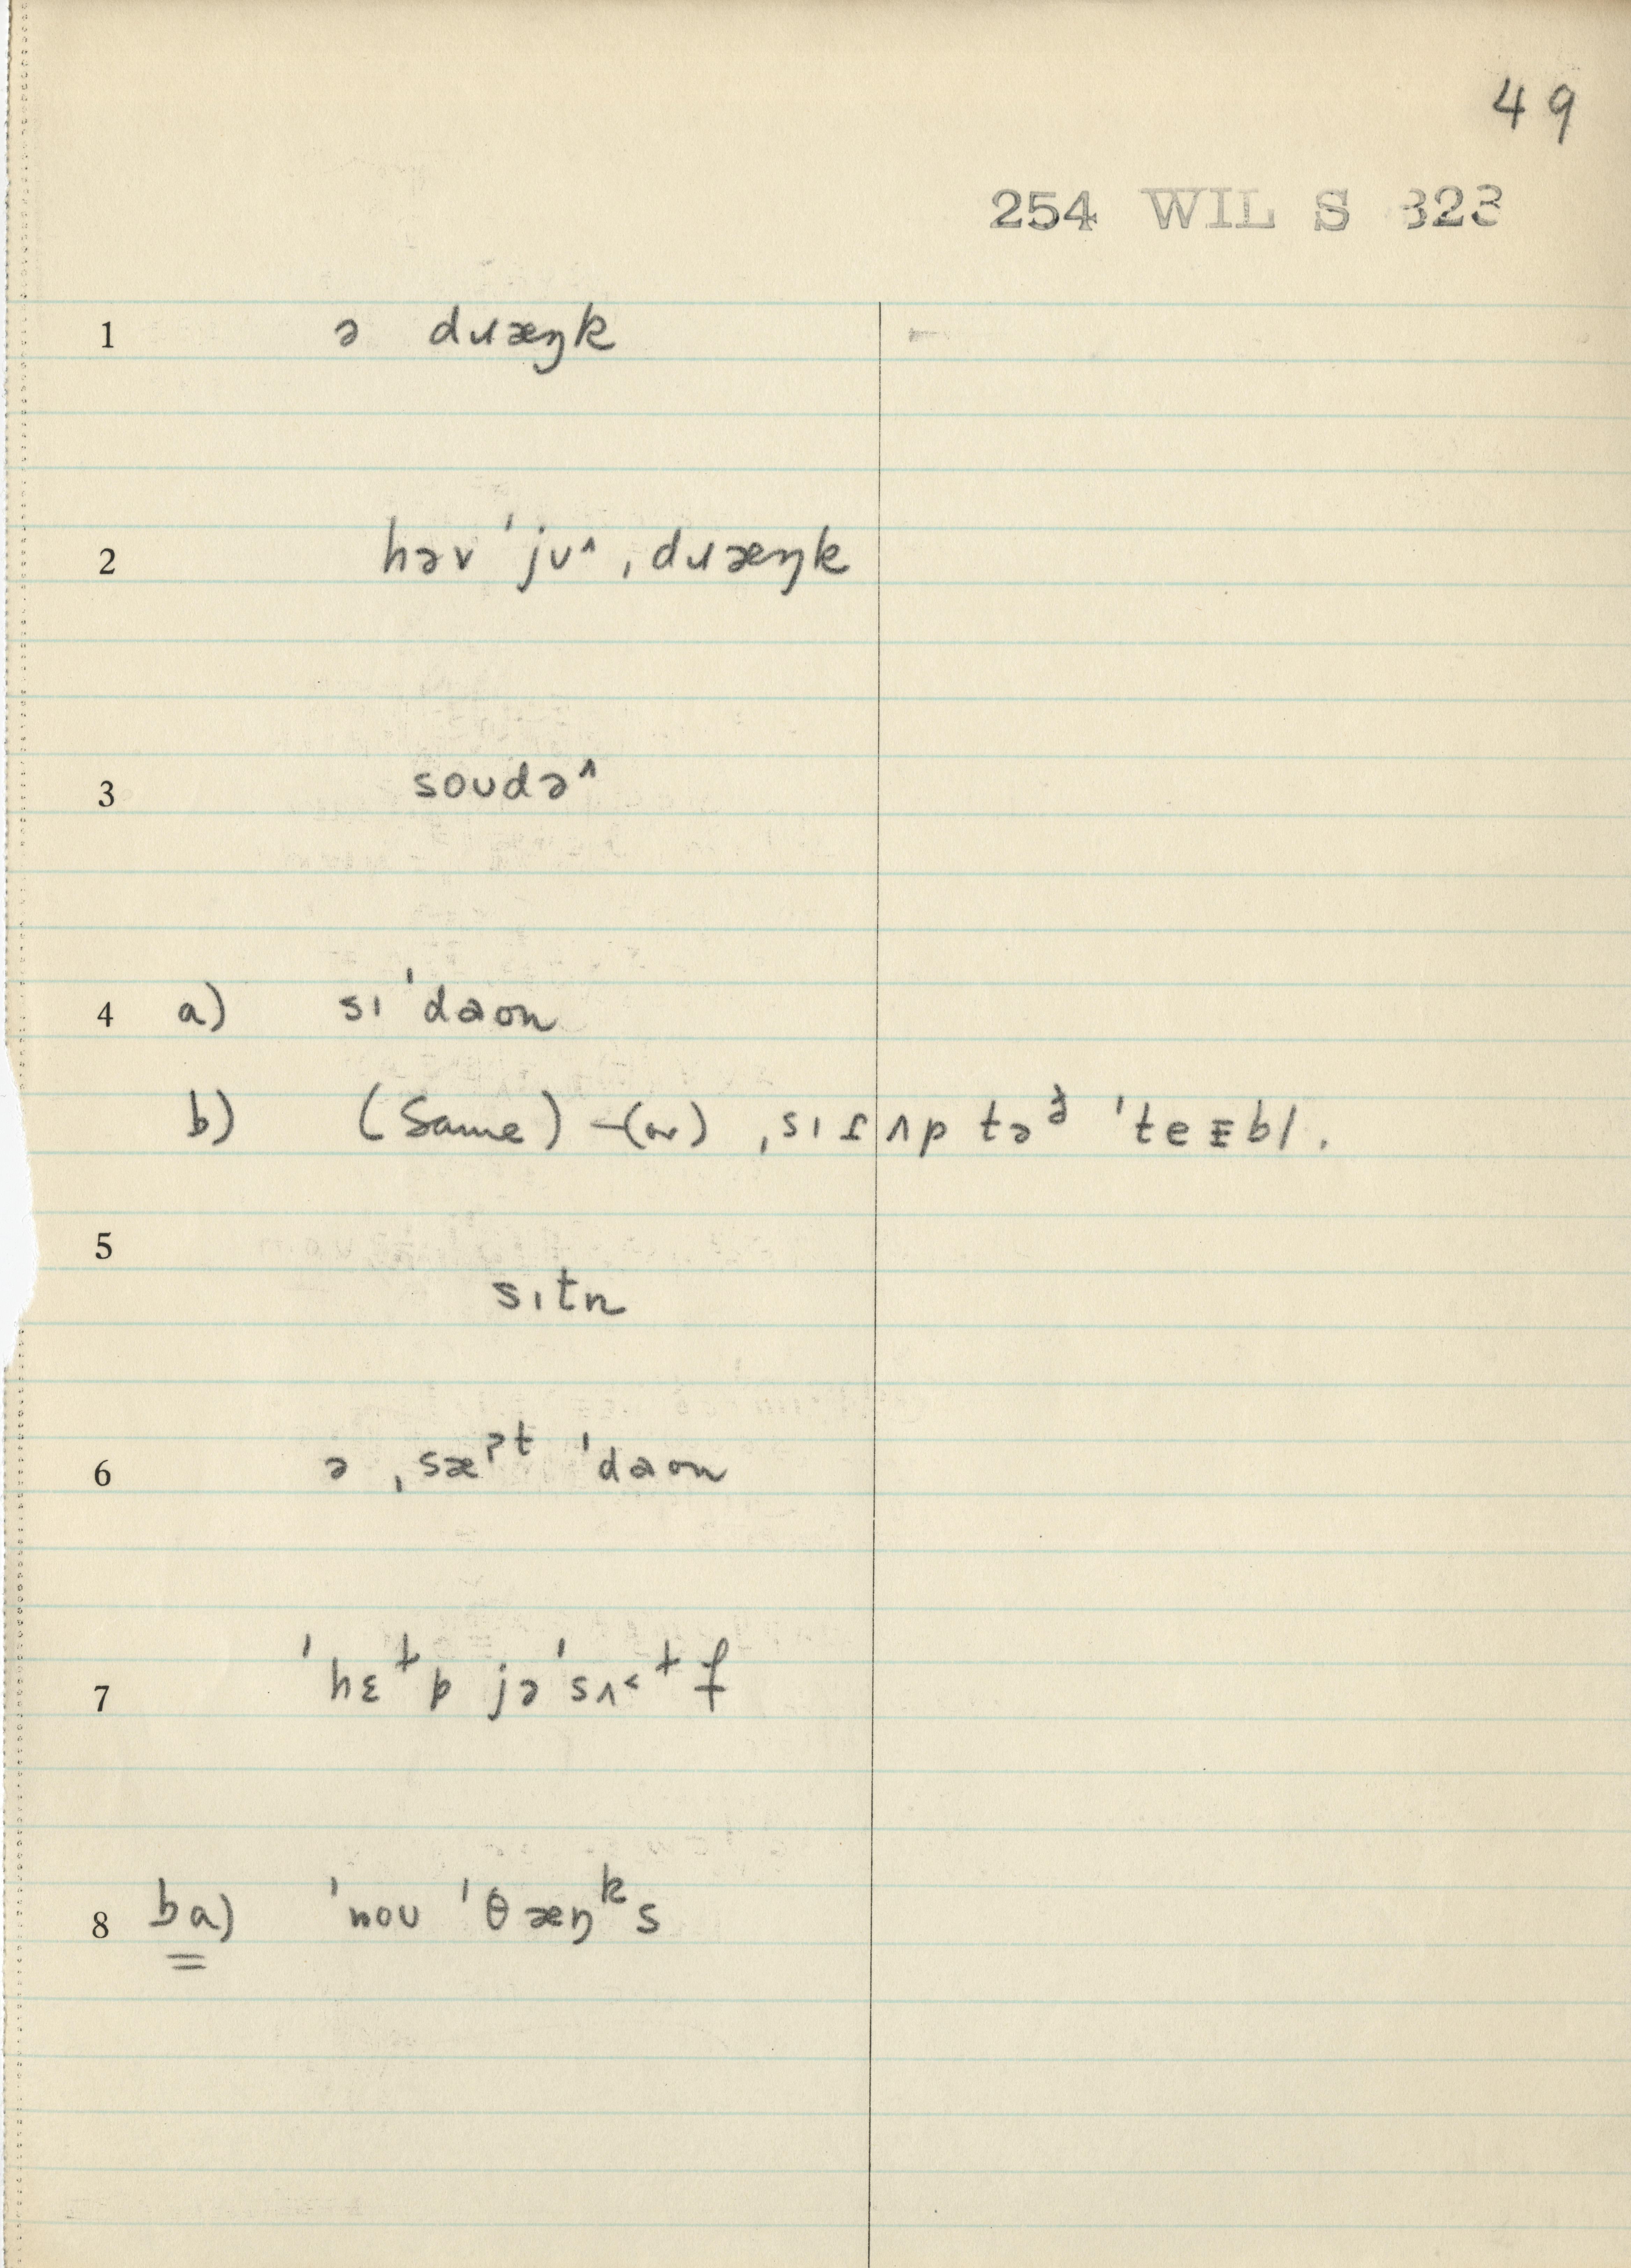 49
254 WIL S 323
1 ə dɹæŋk
2 həv ˈjʊ˄ ˌdɹæŋk
3 soʊdə˄
4 a) sɪ ˈdaʊn
b) (Same) – (or) ˌsɪɾʌp təᵊ̵ ˈteᴇbl.
5
sɪtn
6 ə ˌsæˀᵗ ˈdaʊn
7 ˈhɛᵗp jə ˈsʌ˂ᵗf
8 ba) ˈnoʊ ˈθæŋᵏs